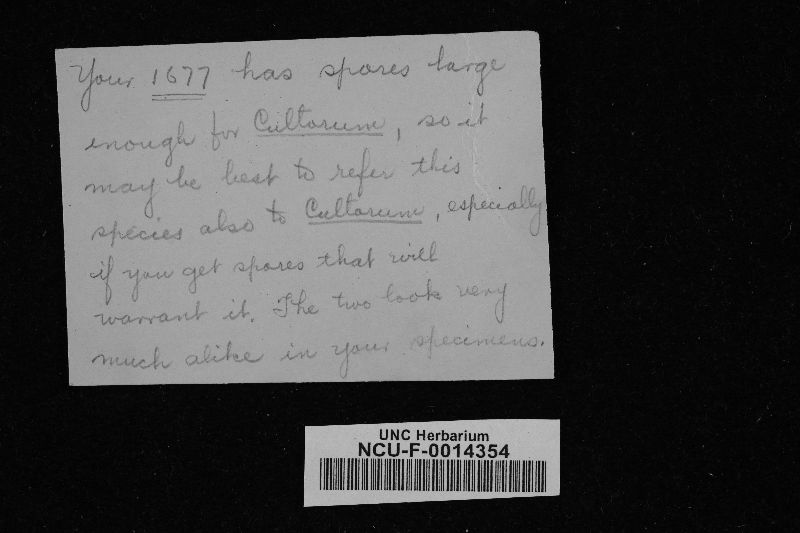 Your 1677 has spores large
enough for Cultorum, so it
may be best to refer this
species also to Cultorum, especially
if you get spores that will
warrant it. The two look very
much alike in your specimens.
UNC Herbarium
NCU-F-0014354